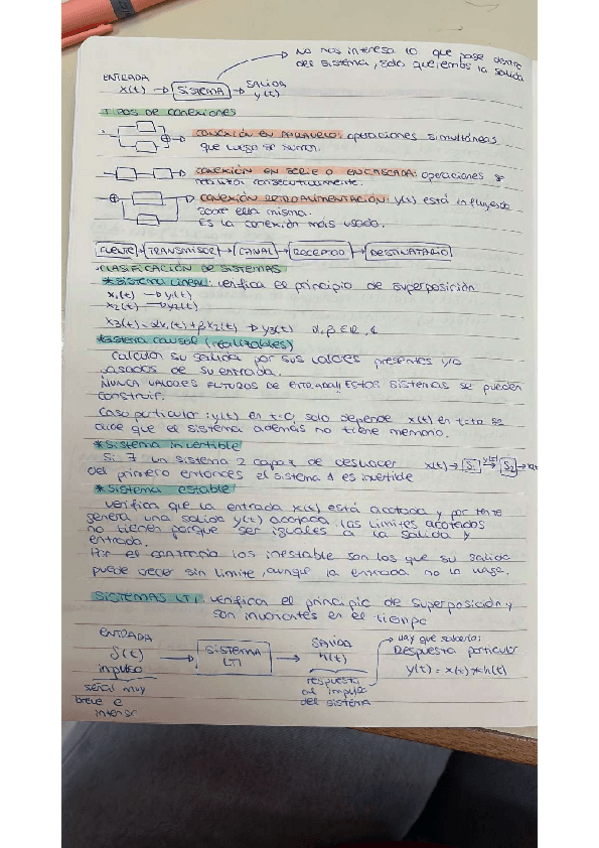 No nos interesa lo que pase dentro
del sistema, solo queremos la salida
ENTRADA
x(t) → SISTEMA → SALIDA y(t)
TIPOS DE CONEXIONES
CONEXIÓN EN PARALELO: operaciones simultáneas
que luego se suman.
CONEXIÓN EN SERIE O EN CASCADA: operaciones se
realizan consecutivamente.
CONEXIÓN RETROALIMENTACIÓN: y(t) está influyendo
sobre ella misma.
Es la conexión más usada.
FUENTE → TRANSMISOR → CANAL → RECEPTOR → DESTINATARIO
CLASIFICACIÓN DE SISTEMAS
*Sistema lineal: verifica el principio de superposición
x₁(t) → y₁(t)
x₂(t) → y₂(t)
x₃(t) = αx₁(t) + βx₂(t) → y₃(t) α, β ∈ R, C
*Sistema causal (realizables)
Calculan su salida por sus valores presentes y/o
pasados de su entrada.
NUNCA VALORES FUTUROS DE ENTRADA! ESTOS SISTEMAS se pueden
construir.
Caso particular: y(t) en t=0 solo depende x(t) en t=to se
dice que el sistema además no tiene memoria.
*Sistema invertible
Si ∃ un sistema 2 capaz de deshacer x(t) → S₁ → y(t) → S₂ →
del primero entonces el sistema 1 es invertible
*Sistema estable
Verifica que la entrada x(t) está acotada y por tanto
genera una salida y(t) acotada. Las límites acotados
no tienen porque ser iguales a la salida y
entrada.
Por el contrario los inestable son los que su salida
puede crecer sin límite, aunque la entrada no lo haga.
SISTEMAS LTI: verifica el principio de superposición y
son invariantes en el tiempo
ENTRADA
δ(t) → SISTEMA LTI → SALIDA h(t)
impulso
señal muy
breve e
intensa
respuesta
al impulso
del sistema
Hay que saberlo:
Respuesta particular
y(t) = x(t) * h(t)